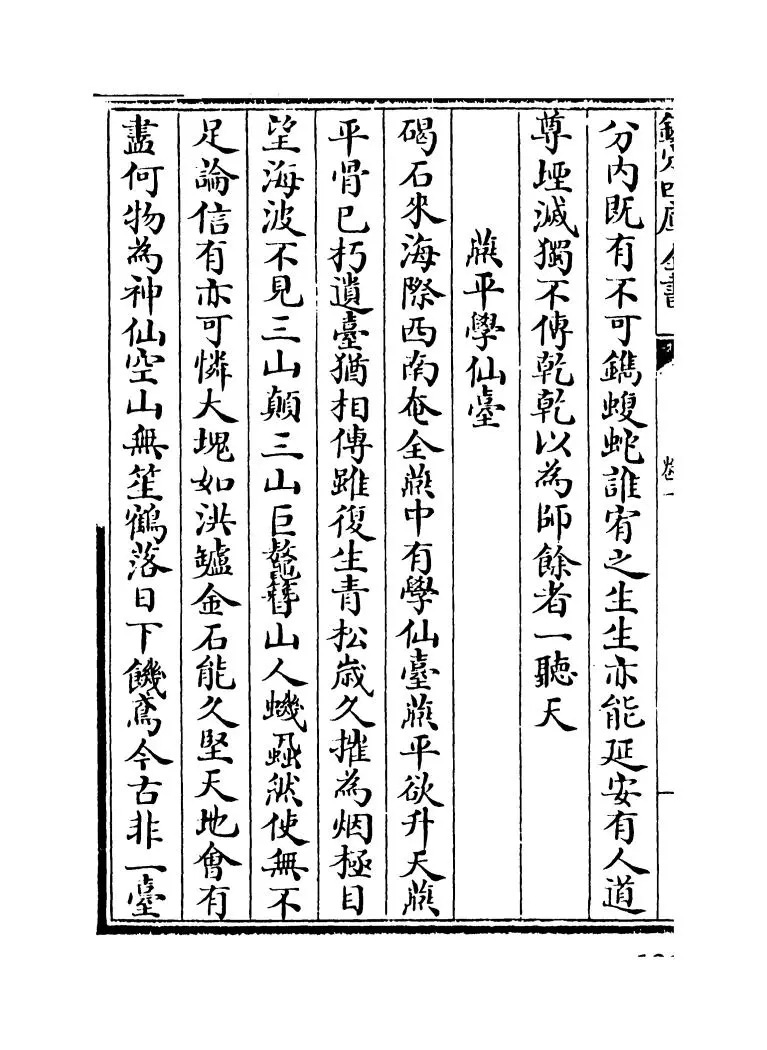 欽定四庫全書 卷一
分内既有不可鐫蝮蛇誰宥之生生亦能延安有人道
尊堙滅獨不傳乾乾以為師餘者一聽天
燕平學仙臺
碣石來海際西南奄全燕中有學仙臺燕平欲升天燕
平骨已朽遺臺猶相傳雖復生青松歲久摧為烟極目
望海波不見三山顛三山巨鼇簪山人蟣蝨然使無不
足論信有亦可憐大塊如洪罏金石能久堅天地會有
盡何物為神仙空山無笙鶴落日下饑鳶今古非一臺